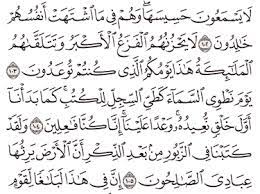 لَا يَسْمَعُونَ حَسِيسَهَا ۖ وَهُمْ فِي مَا اشْتَهَتْ أَنفُسُهُمْ
خَٰلِدُونَ ١٠٢ لَا يَحْزُنُهُمُ الْفَزَعُ الْأَكْبَرُ وَتَتَلَقَّىٰهُمُ
الْمَلَٰٓئِكَةُ هَٰذَا يَوْمُكُمُ الَّذِي كُنتُمْ تُوعَدُونَ ١٠٣
يَوْمَ نَطْوِي السَّمَآءَ كَطَيِّ السِّجِلِّ لِلْكُتُبِ ۚ كَمَا بَدَأْنَآ
أَوَّلَ خَلْقٍ نُّعِيدُهُۥ ۚ وَعْدًا عَلَيْنَآ ۚ إِنَّا كُنَّا فَٰعِلِينَ ١٠٤ وَلَقَدْ
كَتَبْنَا فِي الزَّبُورِ مِنۢ بَعْدِ الذِّكْرِ أَنَّ الْأَرْضَ يَرِثُهَا
عِبَادِيَ الصَّٰلِحُونَ ١٠٥ إِنَّ فِي هَٰذَا لَبَلَٰغًا لِّقَوْمٍ